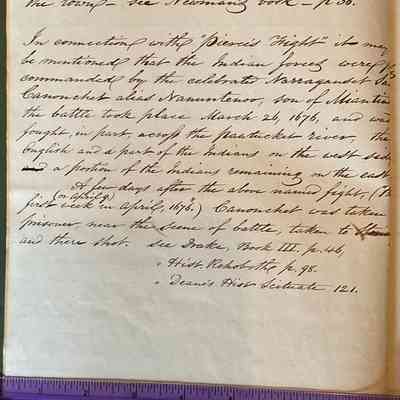 the town – see Newman's book – p 36.
In connection with "Pierce's Fight" it may
be mentioned that the Indian forces were
commanded by the celebrate Narragansett Sa
Canonchet alias Nanuntenoo, son of Mianti
the battle took place March 26, 1676, and was
fought, in part, across the pawtucket river, the
English and a part of the Indians on the west side
and a portion of the Indians remaining on the east
A few days after the above named fight, (Th
(on April 9)
first week in April, 1676.) Canonchet was taken
prisoner, near the scene of battle, taken to
and there shot. see Drake, Book III. p. 46,
" Hist Rehoboth p. 98.
" Deane's Hist Scituate 121.